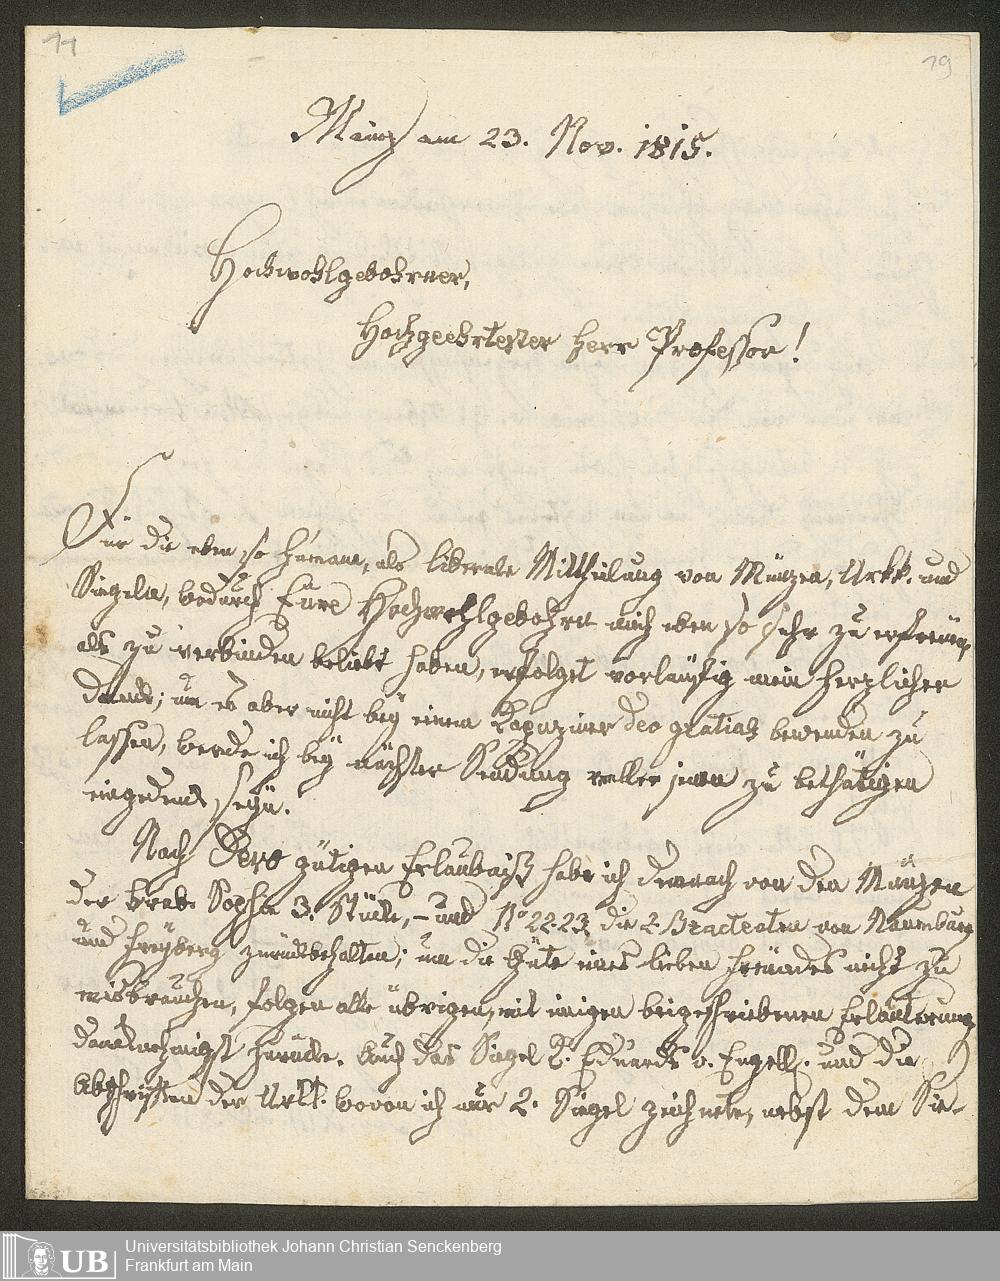 11
19
Mainz am 23. Nov. 1815.
Hochwohlgebohrner,
Hochgeehrtester Herr Professor!
Für die eben so humane, als liberale Mittheilung von Münzen, Urkk. und
Siegeln, wodurch Eure Hochwohlgebohrn mich eben so sehr zu erfreuen,
als zu verbinden beliebt haben, erfolget vorläufig mein herzlicher
Dank; um es aber nicht bey einem Kapuziner deo gratias bewenden zu
lassen, werde ich bey nächster Sendung zu bethätigen
eingedenk seyn.
Nach Dero gütigen Erlaubniß habe ich demnach von den Münzen
der Sophie 3. Stücke, – und No 22. 23. die 2. Bracteaten von Naumburg
und Freyberg zurückbehalten; um die Güte eines lieben Freundes nicht zu
misbrauchen, folgen alle übrigen, mit einigen beigeschriebenen Erläuterung
danknehmigst zurücke. Auch das Siegel K. Eduards v. Engell. und die
Abschriften der Urkk. wovon ich nur 2. Siegel zeichnete, nebst dem Sie-
UB
Universitätsbibliothek Johann Christian Senckenberg
Frankfurt am Main